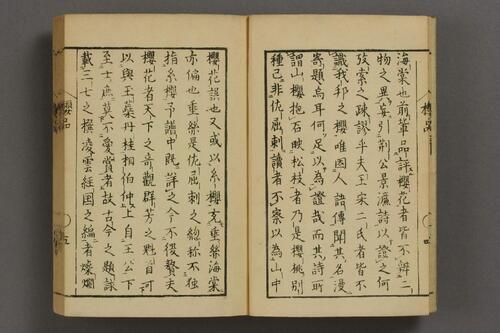 櫻品 四
海棠也前輩品評櫻花者皆不辨二
物之異妄引荊公景濂詩以證之何
攷索之踈謬乎夫王宋二氏者皆不
識我邦之櫻唯因人語傳聞其名漫
寄題焉耳何足以為證哉而其詩所
謂山櫻抱石映松枝者乃是櫻桃別
種已非仇屈刺讀者不察以為山中
櫻花誤也又或以糸櫻充垂絲海棠
亦偏也垂絲是仇屈刺之総称不独
指糸櫻予譜中既詳之今不復贅夫
櫻花者天下之奇觀群芳之魁首可
以與玉蘂丹桂相伯仲上自王公下
至士庶莫不愛賞者故古今之題詠
載三七之撰凌雲経国之編者燦爛
櫻品 五